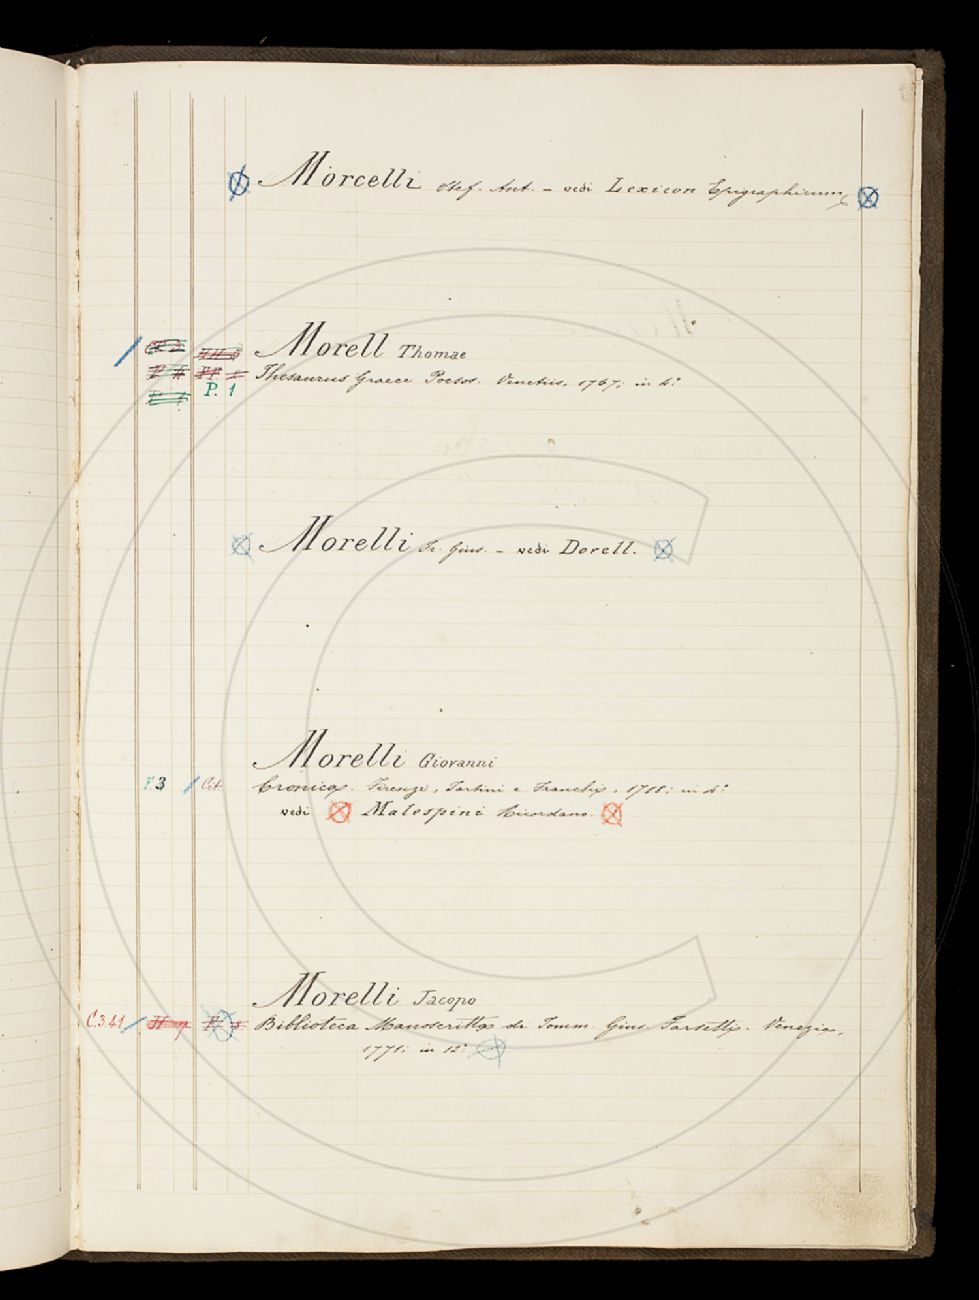 Morcelli Stef. Ant. - vedi Lexicon Epigraphicum
Morell Thomae
Thesaurus Graece Poeseos. Venetiis, 1767; in 4.º
P. 1
Morelli Gius. - vedi Dorell.
Morelli Giovanni
F.3 Cronica. Firenze, Tartini e Franchi, 1718; in 4.º
vedi Malespini Ricordano.
Morelli Jacopo
C.3.41 Biblioteca Manoscritta di Tomm. Gius. Farsetti. Venezia,
1771; in 12.º